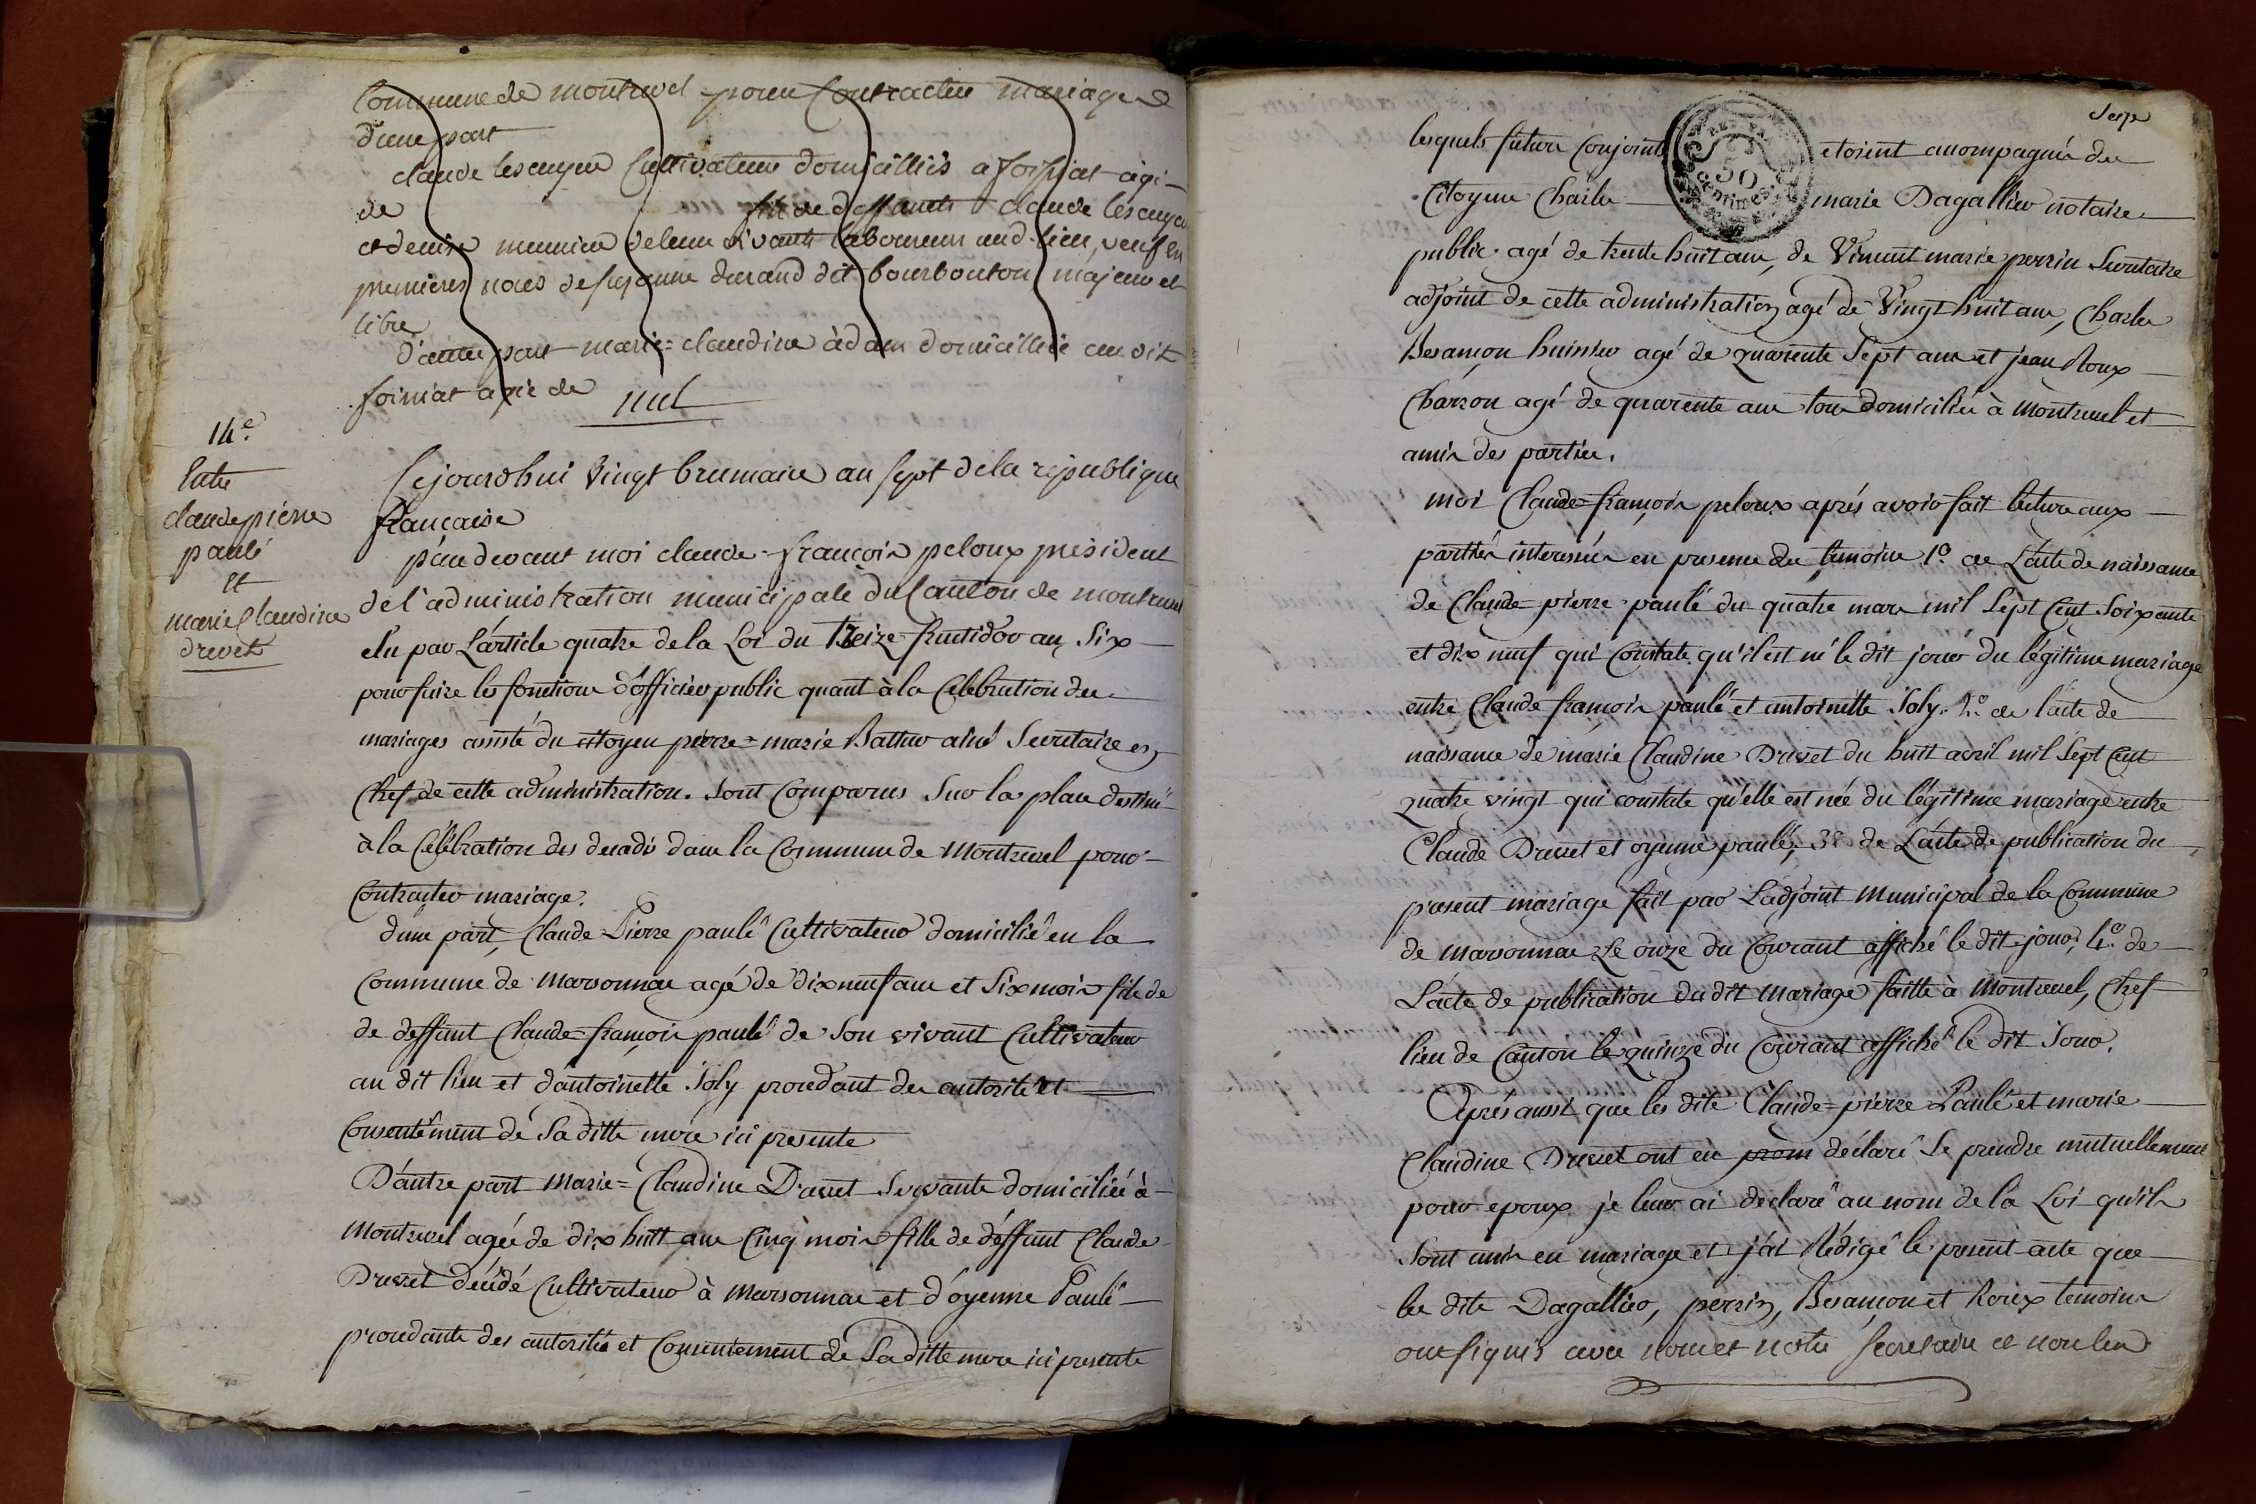 Commune de montrevel pour Contracter mariage
d'une part
claude lescuyer Cultivateur domicilliés a foissiat agé
de fils de deffunts claude lescuyer
et denise meunier de leur vivants laboureurs aud. lieu, veuf en
premieres noces de suzanne durand dit bourbouton majeur et
libre
D'autre part marie=claudine àdam domicilliée au dit
foissiat agée de
nul
14e.
Entre
claude pierre
paulé
et
marie Claudine
drevet
Cejourdhui Vingt brumaire an sept de la republique
française
pardevant moi claude=françois peloux président
de l'administration municipale du Canton de montrevel
élu par L'article quatre de la Loi du treize fructidor an Six
pour faire les fonctions d'officier public quant à la Celebration des
mariages assisté du citoyen pierre=marie Battur ainé Secretaire en
Chef de cette administration. Sont Comparus Sur la place destinée
à la Célébration des decadis dans la Commune de Montrevel pour
Contracter mariage.
d'une part, Claude Pierre paulé Cultivateur domicilié en la
Commune de marsonnac agé de dix neuf ans et Six mois fils de
de deffunt Claude=françois paulé de Son vivant Cultivateur
au dit lieu et dantoinette Joly procedant des autorité et
Consentement de Saditte mere ici presente
D'autre part Marie=Claudine Drevet Servante domiciliée à
Montrevel agée de dix huit ans Cinq mois fille de déffunt Claude
Drevet décédé Cultivateur à Marsonnac et d'oyenne Paulé
procedante des autorités et Consentement de Saditte mere ici presente
lesquels futurs Conjoints etoient accompagnés du
Citoyen Charles marie Dagallier notaire
public agé de trente huit ans, de Vincent marie perrin Secretaire
adjoint de cette administration agé de Vingt huit ans, Charles
Besançon huissier agé de quarente Sept ans et jean Roux
Charron agé de quarente ans tous domiciliés à Montrevel et
amis des parties.
moi Claude=françois peloux aprés avoir fait lecture aux
parties interessées en presence des temoins 1o. de L'acte de naissance
de Claude=pierre paulé du quatre mars mil Sept Cent Soixante
et dix neuf qui Constate qu'il est né le dit jour du légitime mariage
entre Claude françois paulé et antoinette Joly. 2o. de l'acte de
naissance de marie Claudine Drevet du huit avril mil Sept Cent
quatre vingt qui constate qu'elle est née du légitime mariage entre
Claude Drevet et oyenne paulé; 3o de L'acte de publication du
present mariage fait par L'adjoint Municipal de la Commune
de marsonnac Le onze du Courant affiché le dit jour; 4o. de
L'acte de publication du dit Mariage faitte à Montrevel, Chef
lieu de Canton le quinze du Courant affiché le dit Jour.
Aprés aussi que les dits Claude=pierre Paulé et marie
Claudine Drevet ont eu prom déclaré Se prendre mutuellement
pour epoux je leur ai declaré au nom de la Loi qu'ils
Sont unis en mariage et j'ai Rédigé le present acte que
les dits Dagallier, perrin, Besançon et Roux temoins
ont signés avec nous et notre secretaire et non les
50
centimes